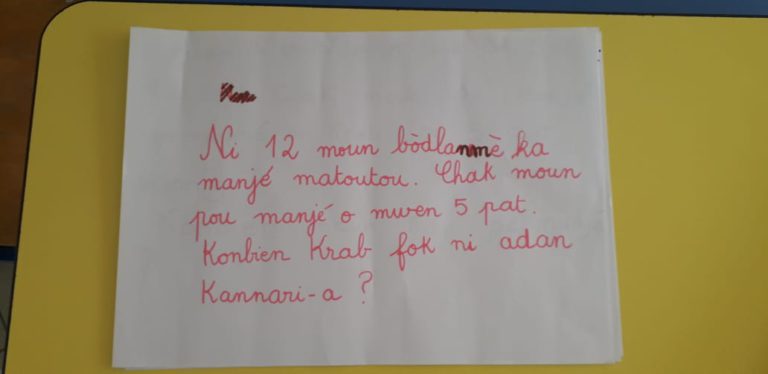 Ni 12 moun bòdlanmè ka
manjé matoutou. Chak moun
pou manjé o mwen 5 pat.
Konbien Krab fok ni adan
Kannari-a ?